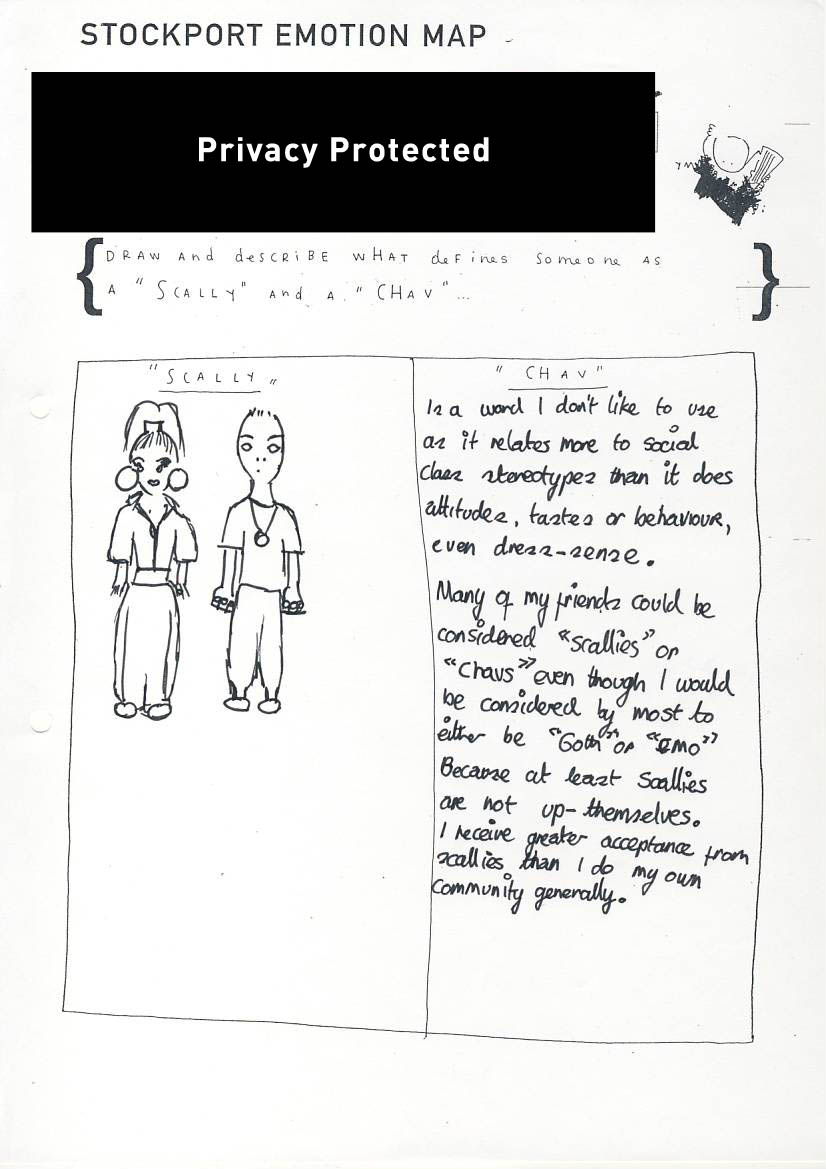 STOCKPORT EMOTION MAP
Privacy Protected
DRAW and descRiBE wHAT deFines someone as
A "SCALLY" and A "CHAV"...
"SCALLY"
"CHAV"
Is a word I don't like to use
as it relates more to social
class stereotypes than it does
attitudes, tastes or behaviour,
even dress-sense.
Many of my friends could be
considered "scallies" or
"Chavs" even though I would
be considered by most to
either be "Goth" or "Emo"
Because at least Scallies
are not up-themselves.
I receive greater acceptance from
scallies than I do my own
community generally.